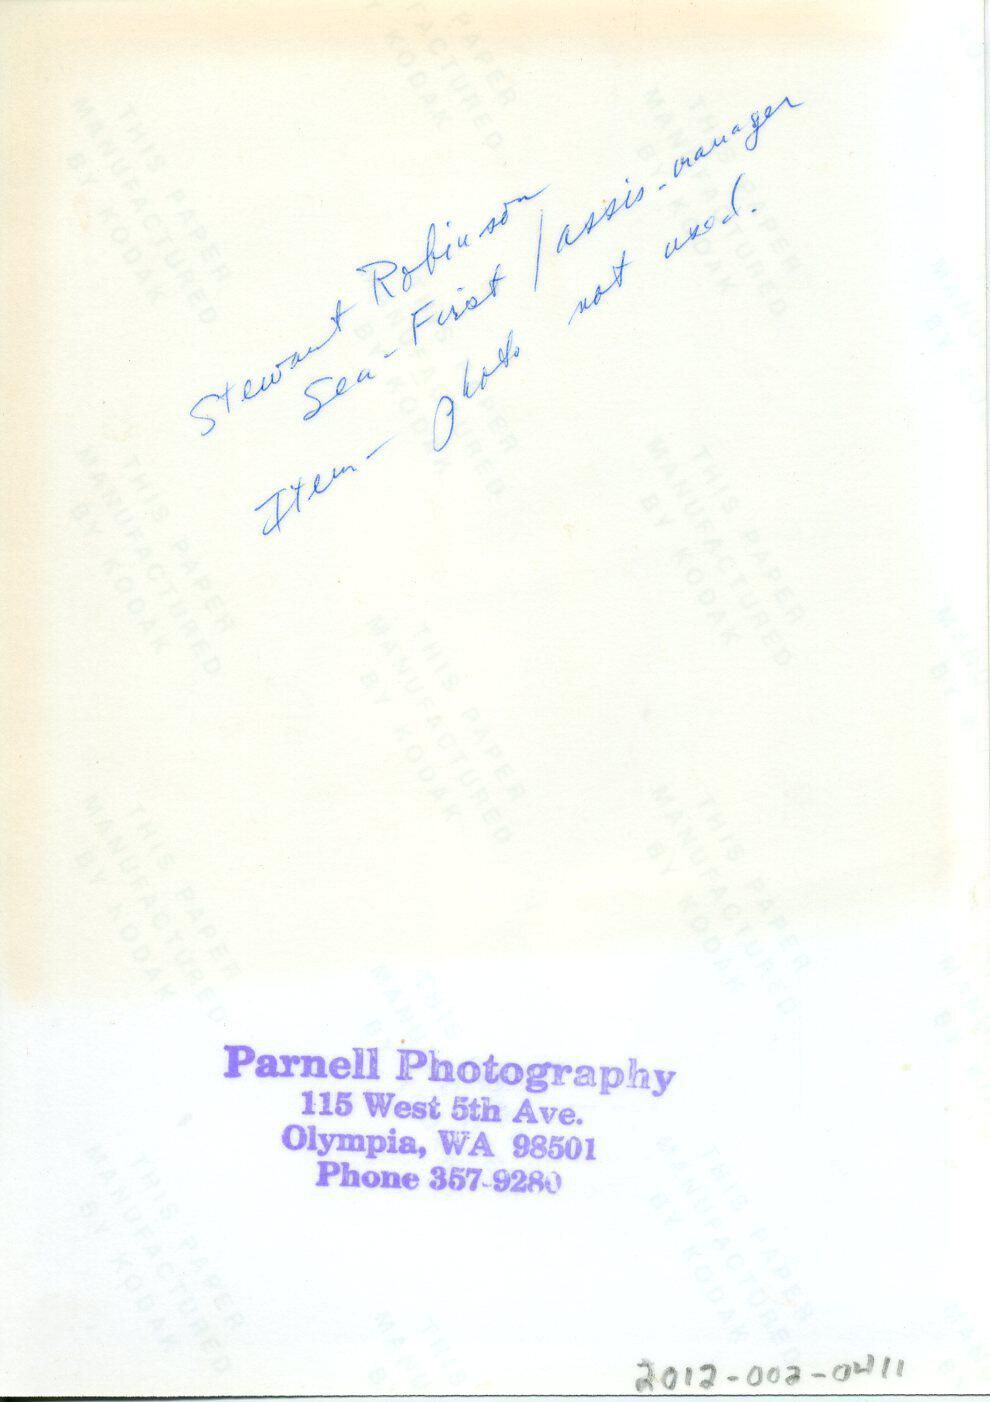 Stewart Robinson
Sea-First / assis-manager
Item- Photo not used.
Parnell Photography
115 West 5th Ave.
Olympia, WA 98501
Phone 357-9280
2012-002-0411
THIS PAPER
MANUFACTURED
BY KODAK